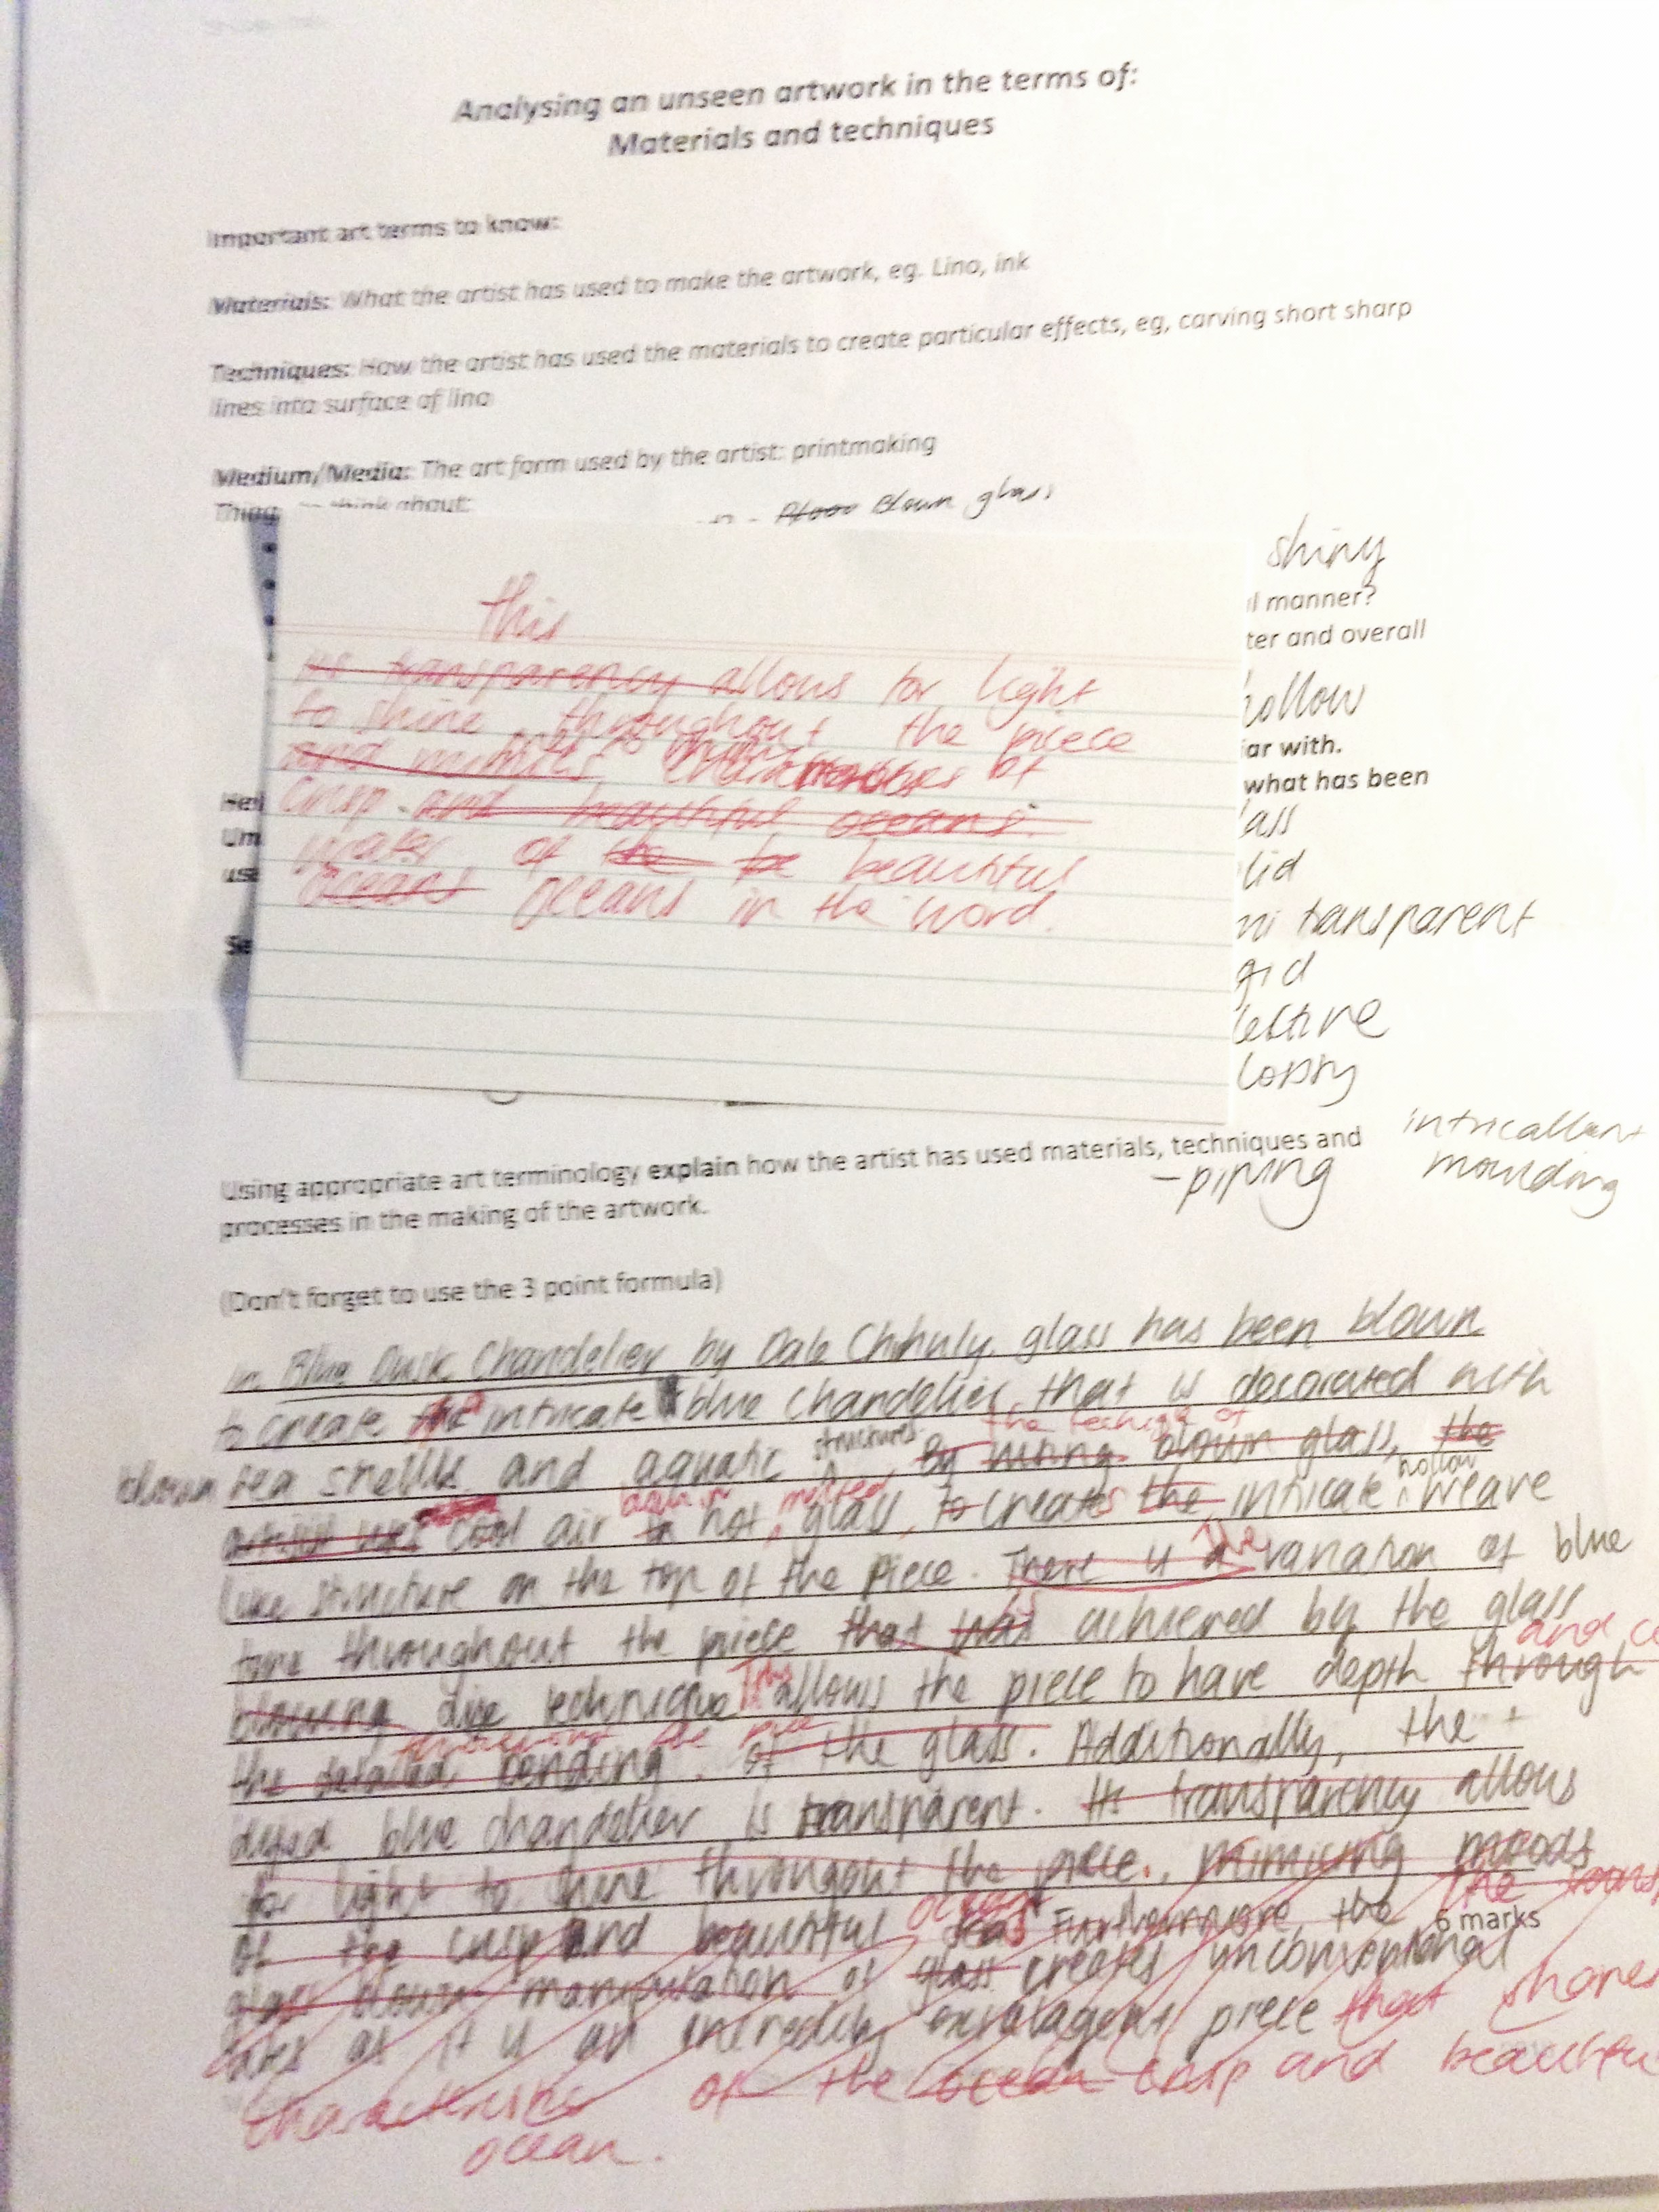 Analysing an unseen artwork in the terms of:
Materials and techniques
Important art terms to know:
Materials: What the artist has used to make the artwork, eg. Lino, ink
Techniques: How the artist has used the materials to create particular effects, eg, carving short sharp
lines into surface of lino
Medium/Media: The art form used by the artist: printmaking
think about:
Blown glass
shiny
manner?
ter and overall
this
its transparency allows for light
to shine throughout the piece
and mimics characteristics of
crisp and beautiful oceans.
water of the be beautiful
oceans oceans in the word.
hollow
iar with.
what has been
Hei
Um
use
Se
ass
lid
mi transparent
gid
lective
lossy
intricallant
moulding
Using appropriate art terminology explain how the artist has used materials, techniques and
- piping
processes in the making of the artwork.
(Don't forget to use the 3 point formula)
in Blue Dusk Chandelier by Dale Chihuly, glass has been blown
to create the intricate blue chandelier that is decorated with
blown sea shells and aquatic structures. By mixing the technique of blown glass, the
artist uses cool air to hot, melted glass, to creates the intricate hollow weave
like structure on the top of the piece. There is a The variation of blue
tone throughout the piece that was is achieved by the glass
blowing dye technique This allows the piece to have depth through and
the detailed bending throughout the piece. of the glass. Additionally, the
dyed blue chandelier is transparent. Its transparency allows
for light to shine througout the piece., mimicing moods
of the crisp and beautiful ocean seas Furthermore, the the
6 marks
glass blown manipulation of glass creates unconventional
as it is an incredibly extralagent piece that shares
characteristics of the ocean crisp and beautiful
ocean.